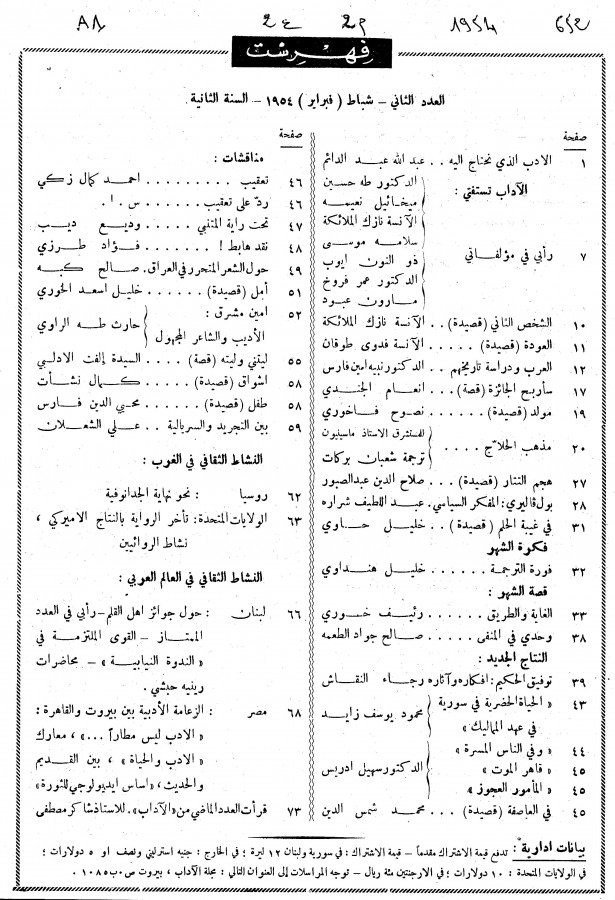 A8 2ع 2م 1954 652
فهرست
العدد الثاني – شباط ( فبراير ) ١٩٥٤ – السنة الثانية
صفحة
١ الادب الذي نحتاج اليه . . عبد الله عبد الدائم
الآداب تستفتي :
٧ رأيي في مؤلفاتي
الدكتور طه حسين
ميخائيل نعيمه
الآنسة نازك الملائكة
سلامه موسى
ذو النون ايوب
الدكتور عمر فروخ
مارون عبود
١٠ الشخص الثاني (قصيدة) . . الآنسة نازك الملائكة
١١ العودة (قصيدة) . . . . . الآنسة فدوى طوقان
١٢ العرب ودراسة تاريخهم . . الدكتور نبيه امين فارس
١٧ سأربح الجائزة (قصة) . . . انعام الجندي
١٩ مولد (قصيدة) . . . . . نصوح فاخوري
٢٠ مذهب الحلاج . . . .
للمستشرق الاستاذ ماسينيون
ترجمة شعبان بركات
٢٧ هجم التتار (قصيدة) . . . صلاح الدين عبد الصبور
٢٨ بول فاليري: المفكر السياسي . عبد اللطيف شراره
٣١ في غيبة الحلم (قصيدة) . . خليل حاوي
فكرة الشهر
٣٢ فورة الترجمة . . . . . . خليل هنداوي
قصة الشهر :
٣٣ الغابة والطريق . . . . . . رئيف خوري
٣٨ وحدي في المنفى . . . . . صالح جواد الطعمه
النتاج الجديد :
٣٩ توفيق الحكيم: افكاره وآثاره رجاء النقاش
٤٣ « الحياة الحضرية في سورية
في عهد المماليك » محمود يوسف زايد
٤٤ « وفي الناس المسرة »
٤٥ « قاهر الموت » الدكتور سهيل ادريس
٤٥ « المأمور العجوز »
٤٥ في العاصفة (قصيدة) . . . محمد شمس الدين
صفحة
مناقشات :
٤٦ تعقيب . . . . . . . . . احمد كمال زكي
٤٦ ردّ على تعقيب . . . . . . س . أ .
٤٧ تحت راية المتنبي . . . . . وديع ديب
٤٨ نقد هابط ! . . . . . . . فؤاد طرزي
٤٩ حول الشعر المتحرر في العراق . صالح كبه
٥١ أمل (قصيدة) . . . . . . خليل اسعد الخوري
٥٢ امين مشرق :
الأديب والشاعر المجهول حارث طه الراوي
٥٥ ليتني وليته (قصة) . . . . السيدة إلفت الادلبي
٥٨ اشواق (قصيدة) . . . . . كمال نشأت
٥٨ طفل (قصيدة) . . . . . محيي الدين فارس
٥٩ بين التجريد والسريالية . . . علي الشعلان
النشاط الثقافي في الغرب :
٦٢ روسيا : نحو نهاية الجدانوفية
٦٣ الولايات المتحدة : تأخر الرواية بالنتاج الاميركي ،
نشاط الروائيين
النشاط الثقافي في العالم العربي :
٦٦ لبنان : حول جوائز اهل القلم – رأيي في العدد
الممتاز – القوى الملتزمة في
« الندوة النيابية » – محاضرات
رينيه حبشي .
٦٨ مصر : الزعامة الأدبية بين بيروت والقاهرة :
« الادب ليس مطاراً ... » ، معارك
« الادب والحياة » ، بين القديم
والحديث ، « اساس ايديولوجي للثورة »
٧٣ قرأت العدد الماضي من « الآداب » . للاستاذ شاكر مصطفى
بيانات ادارية : تدفع قيمة الاشتراك مقدماً – قيمة الاشتراك : في سورية ولبنان ١٢ ليرة ؛ في الخارج : جنيه استرليني ونصف او ٥ دولارات ؛
في الولايات المتحدة : ١٠ دولارات ؛ في الارجنتين مئة ريال – توجه المراسلات إلى العنوان التالي : مجلة الآداب ، بيروت ص . ب ١٠٨٥